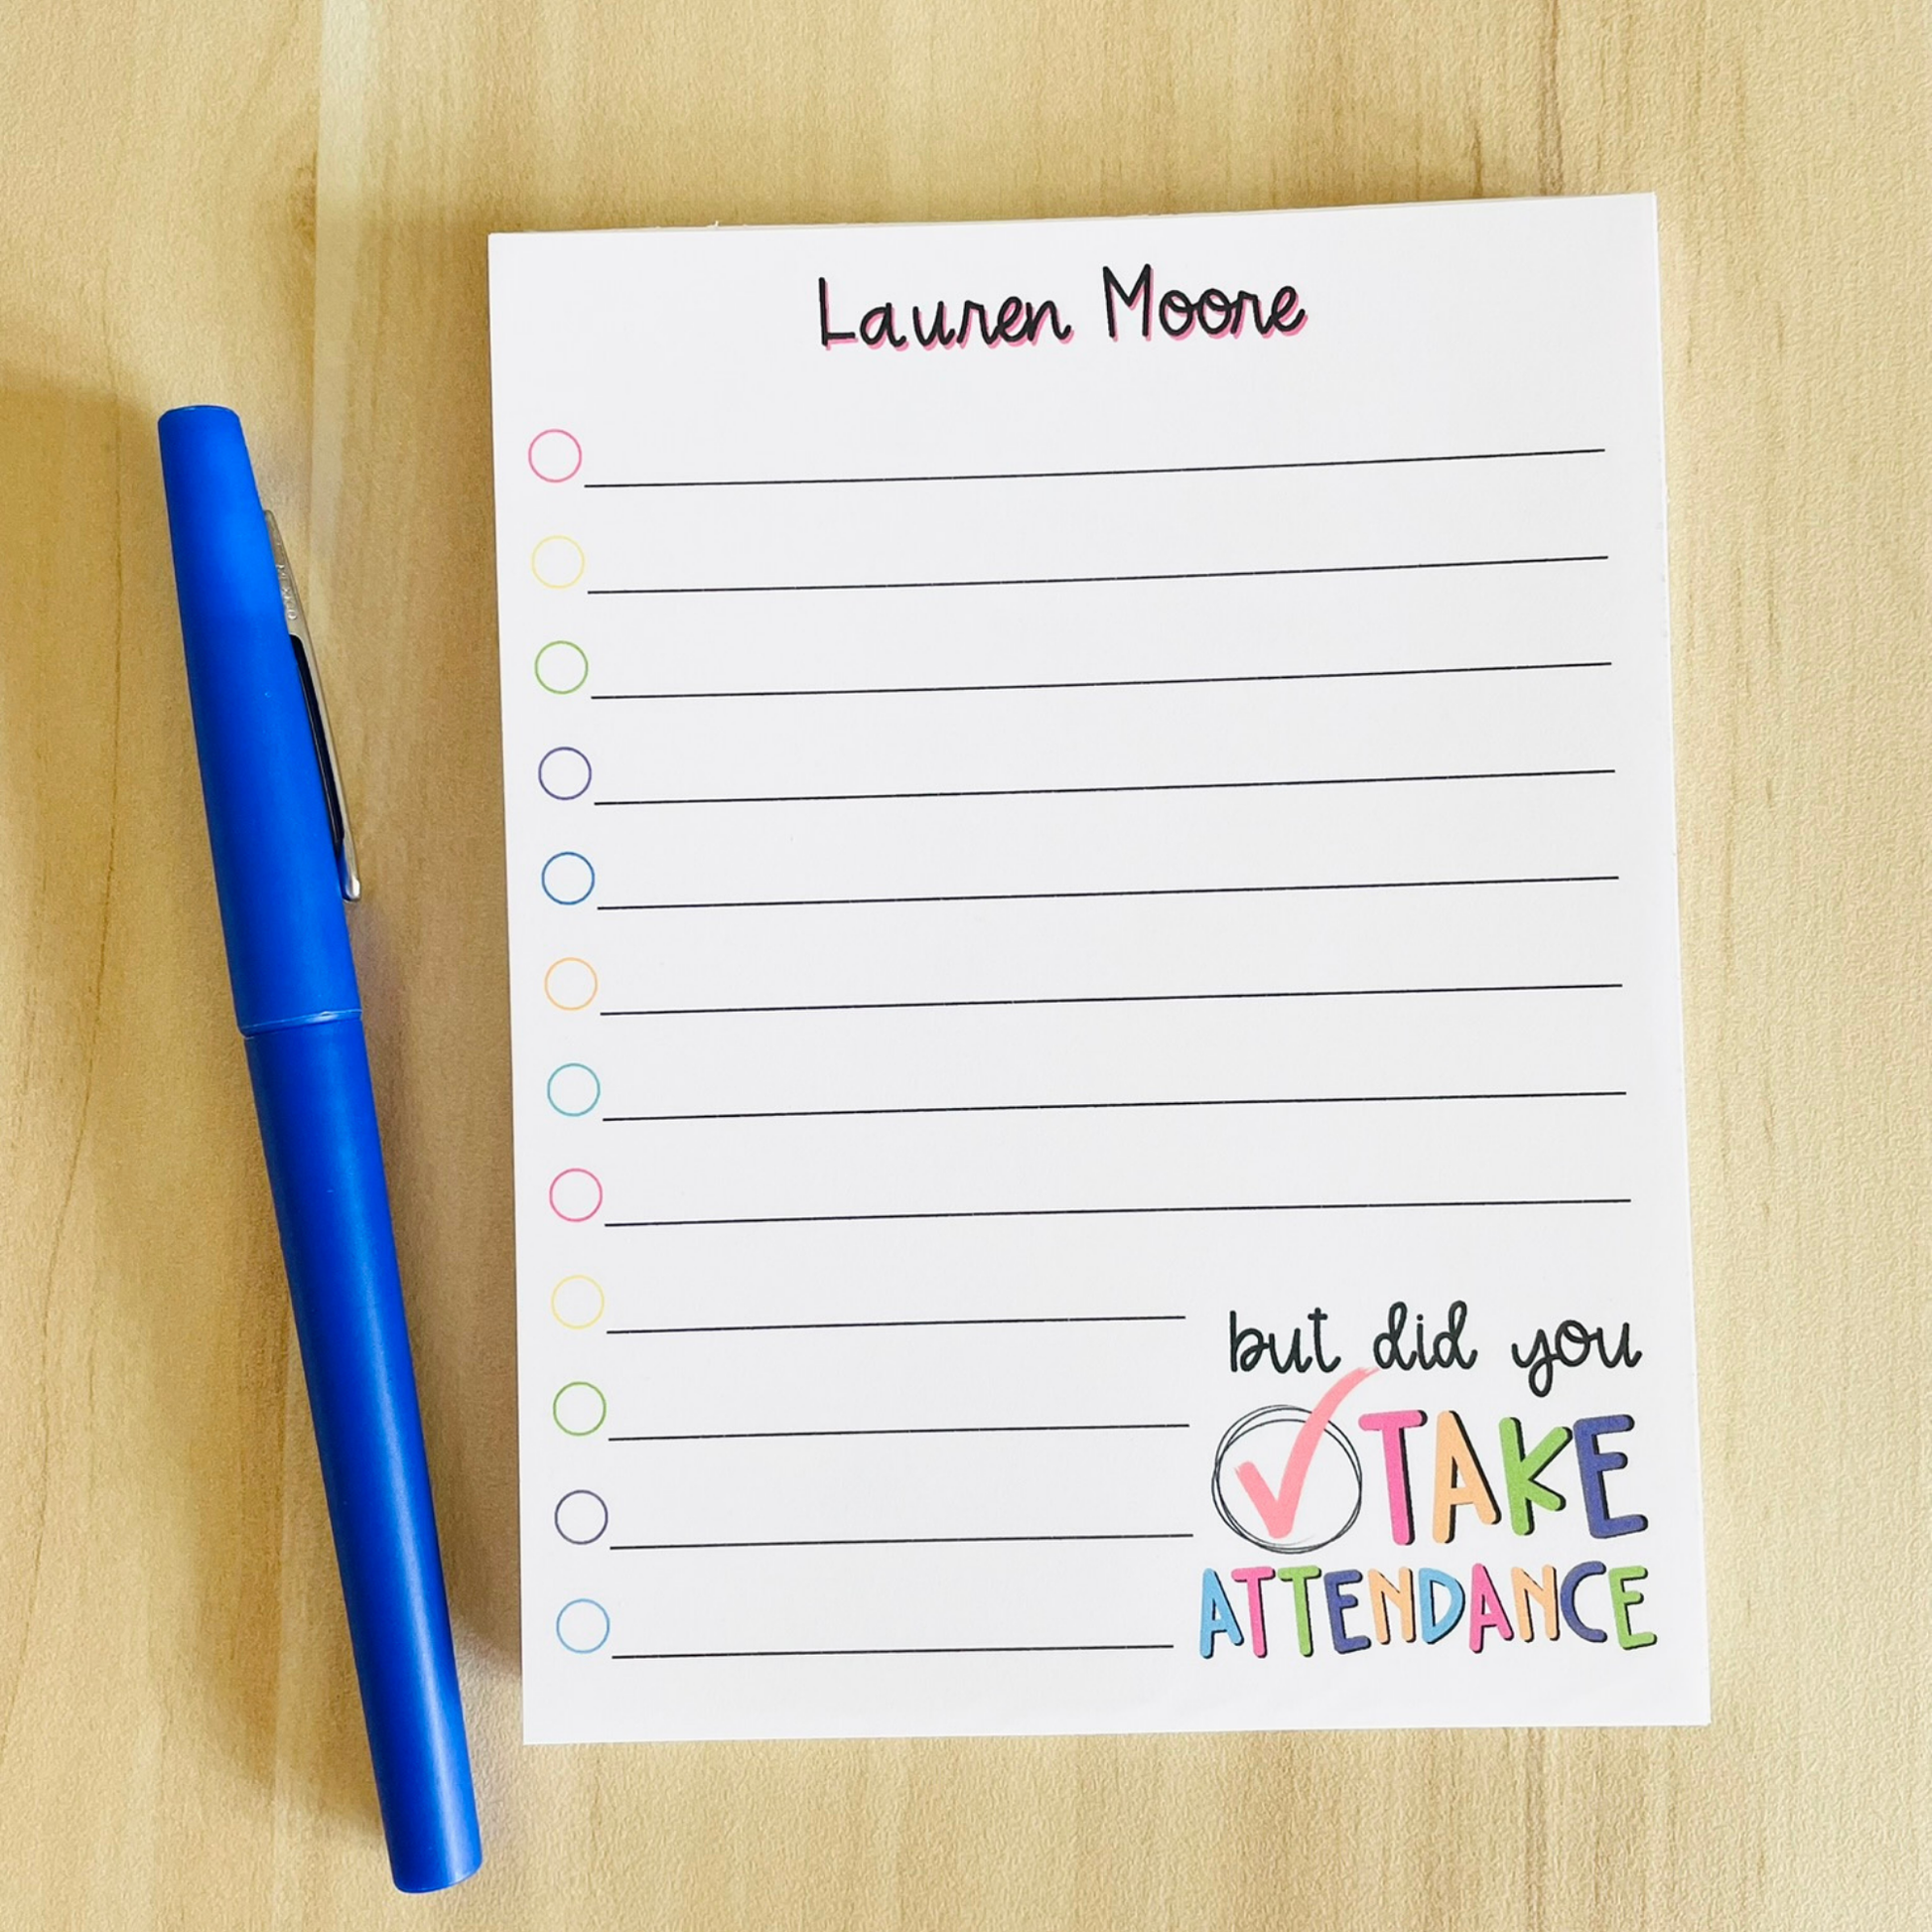 Lauren Moore
but did you
TAKE
ATTENDANCE